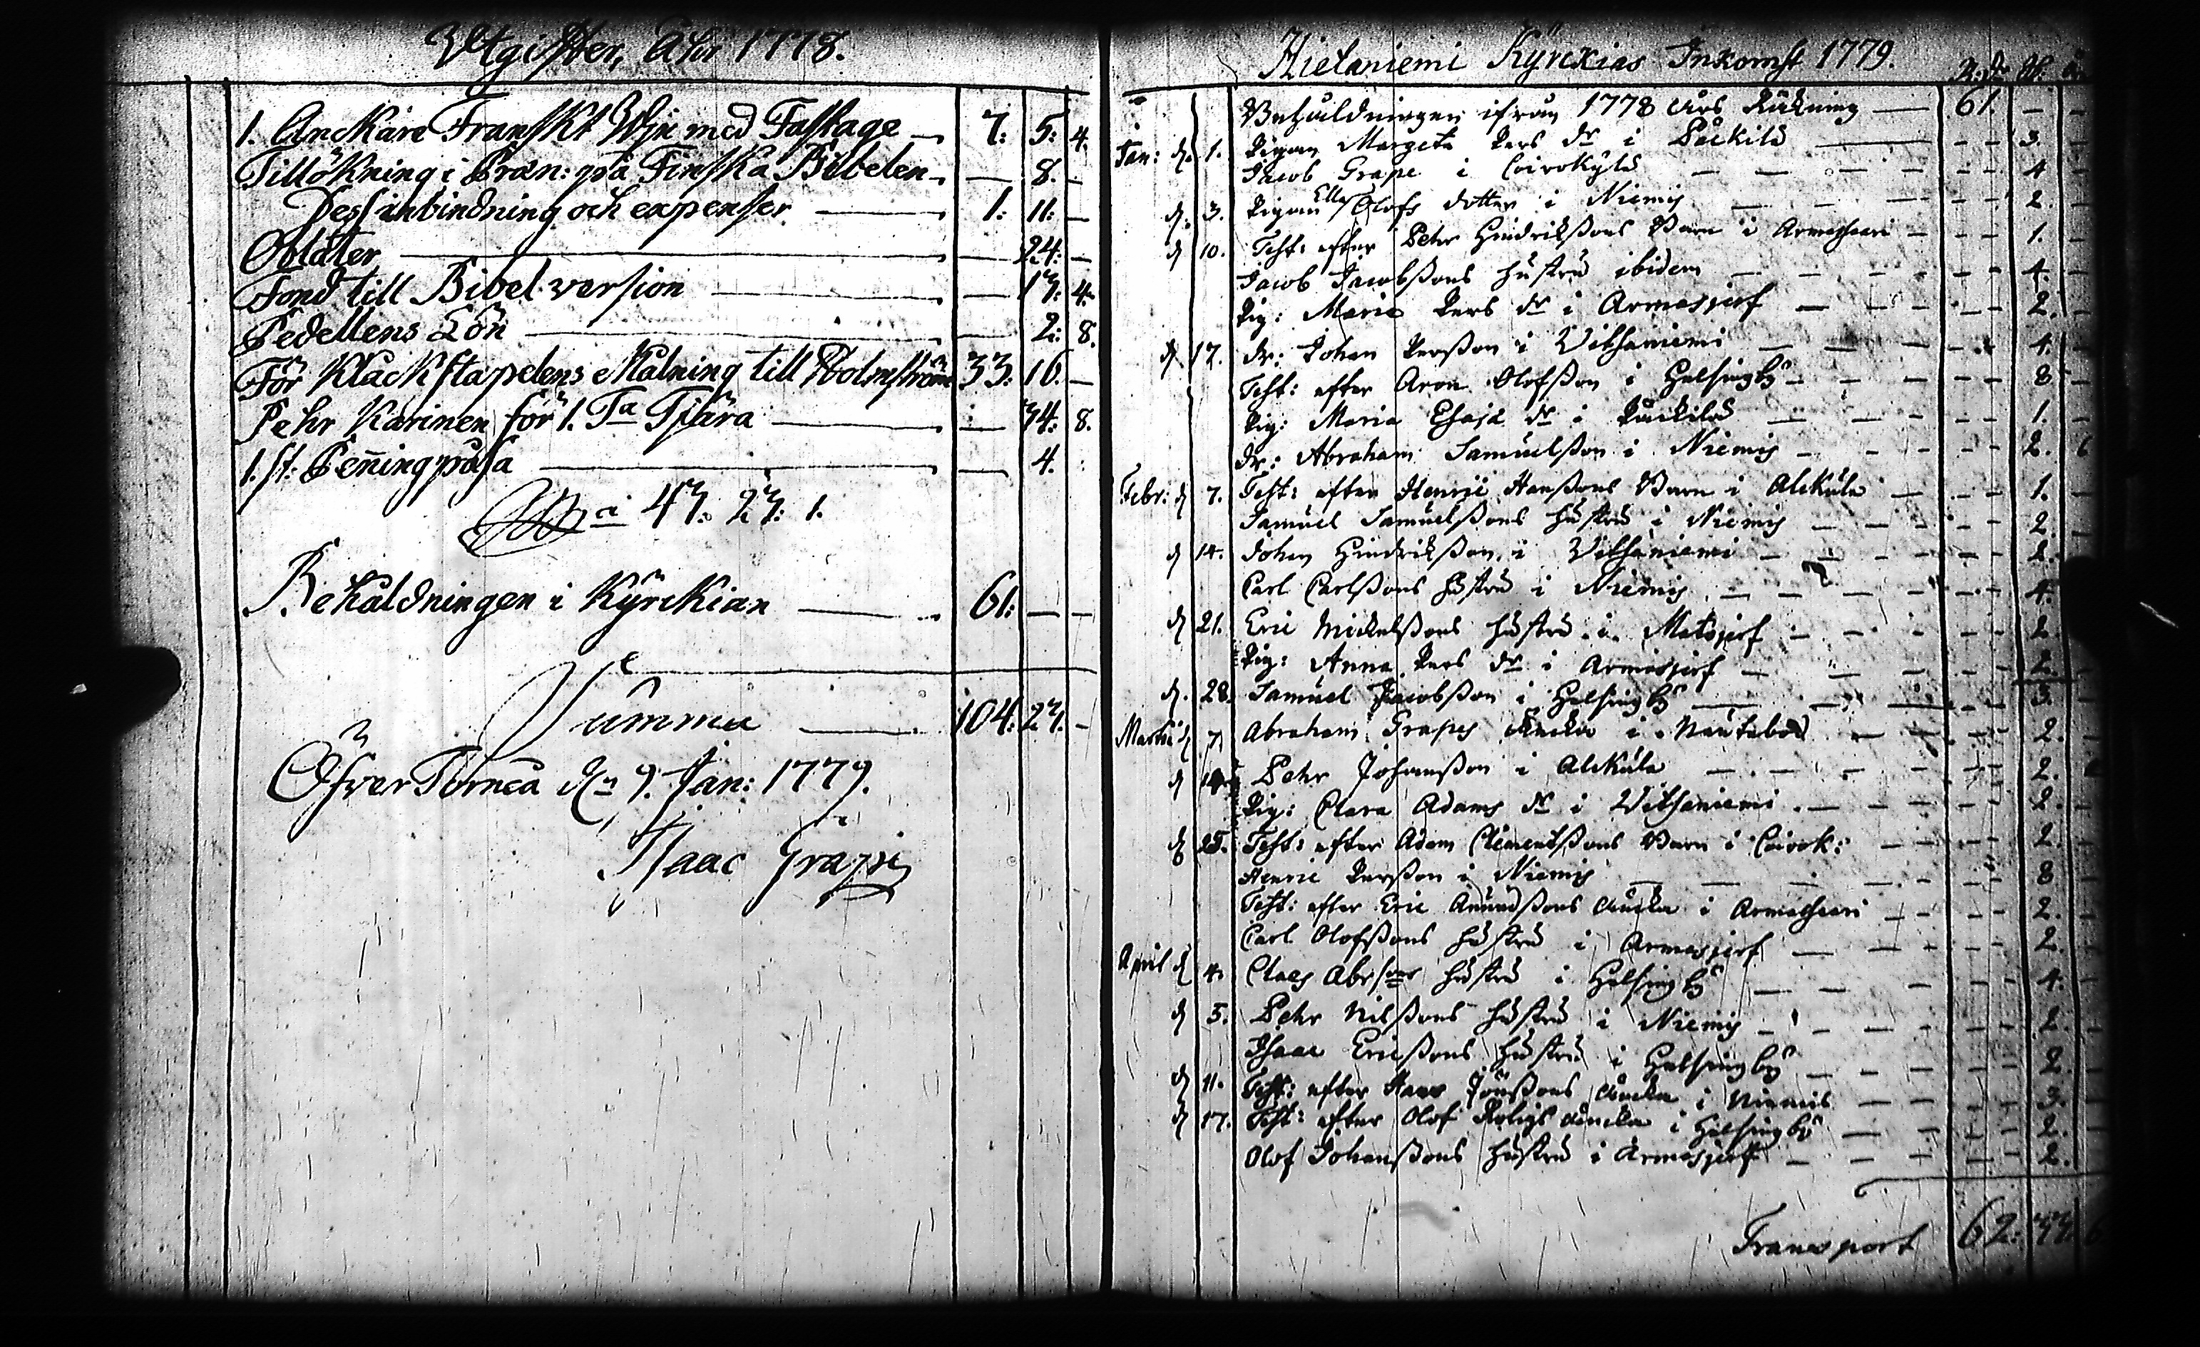 Utgifter, Åhr 1778.
1. Anckare Franskt Wjn med Fastage — 7: 5: 4.
Tillökning i Præn: på Finska Bibelen — 8. —
Dess inbindning och expenser — 1: 11: —
Oblater — 24: —
Fond till Bibel version — 17: 4.
Pedellens Lön — 2: 8.
För Klåckstapelens Målning till Holmström 33: 16. —
Pehr Karinen för 1. Ta Tjära — 34: 8.
1. st: Peñingpåsa — 4.
Sa 47: 27: 1.
Behåldningen i Kÿrckian — 61: — —
Summa — 104: 27. —
ÖfverTorneå dn 9. Jan: 1779.
Isaac Grape
Hietaniemi Kÿrckias Inkomst 1779.
Behåldningen ifrån 1778 Års Räkning — 61. — —
Jan: d. 1. Pigan Margeta Pers dr i Päckilä — 3. —
Jacob Grape i Coivokylä — 4
d. 3. Pigan Ella Olofs dotter i Niemis — 2. —
d 10. Test: efter Pehr Hindrikssons Barn i Armassaari — 1. —
Jacob Jacobssons hustru ibidem — 4. —
Pig: Maria Pers dr i Armasjerf — 2. —
d. 17. dr: Johan Persson i Vitsaniemi — 4. —
Test: efter Aron Olofsson i Helsingbÿ — 8 —
Pig: Maria Esaja dr i Päckilä — 1. —
dr: Abraham Samuelsson i Niemis — 2. 6
Febr: d 7. Test: efter Henric Hanssons Barn i Alckula — 1. —
Samuel Samuelssons hustru i Niemis — 2 —
d 14. Johan Hindriksson i Vitsaniemi — 2.
Carl Carlssons hustru i Niemis — 4. —
d 21. Eric Mickelssons hustru i Matojerf — 2 —
Pig: Anna Pers dr i Armasjerf — 2. —
d. 28. Samuel Jacobsson i Helsingbÿ — 3. —
Martii d 7. Abraham Grapes Äncka i Neutabod — 2. —
d 14. Pehr Johansson i Alckula — 2.
Pig: Clara Adams dr i Vitsaniemi — 2. —
d 25. Test: efter Adam Clementssons Barn i Coivok: — 2 —
Henric Persson i Niemis — 8
Test: efter Eric Amundssons Äncka i Armassaari — 2. —
Carl Olofssons hustru i Armasjerf — 2.
April d 4. Claes Abrssons hustru i Helsingbÿ — 4. —
d 5. Pehr Nilssons hustru i Niemis — 2. —
Isaac Ericssons hustru i Helsingbÿ — 2. —
d 11. Test: efter Hans Jönssons Äncka i Niemis — 3. —
d 17. Test: efter Olof Roligs Äncka i Helsingbÿ — 2. —
Olof Johanssons hustru i Armasjerf — 2. —
Transport 62: 33. 6